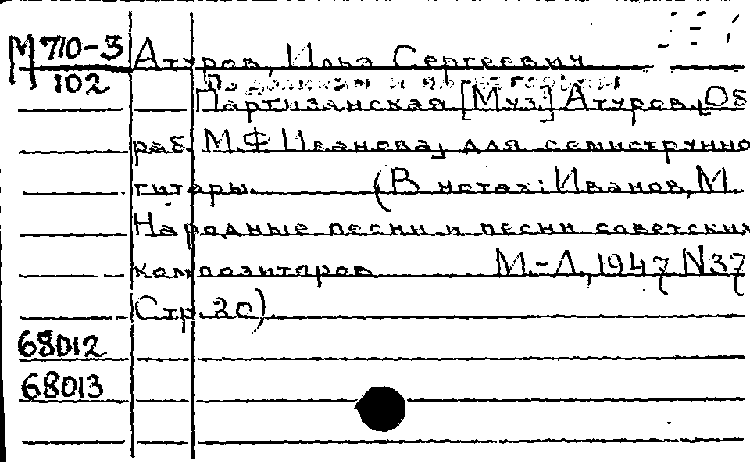 М 710-3 Атуров, Илья Сергеевич
102 По долинам и по взгорьям
Партизанская [Муз.] Атуров, Об
раб. М.Ф Иванова, для семиструнно
гитары. (В нотах: Иванов, М.
Народные песни и песни советских
композиторов М.-Л, 1947 N37
Стр. 20)
68012
68013